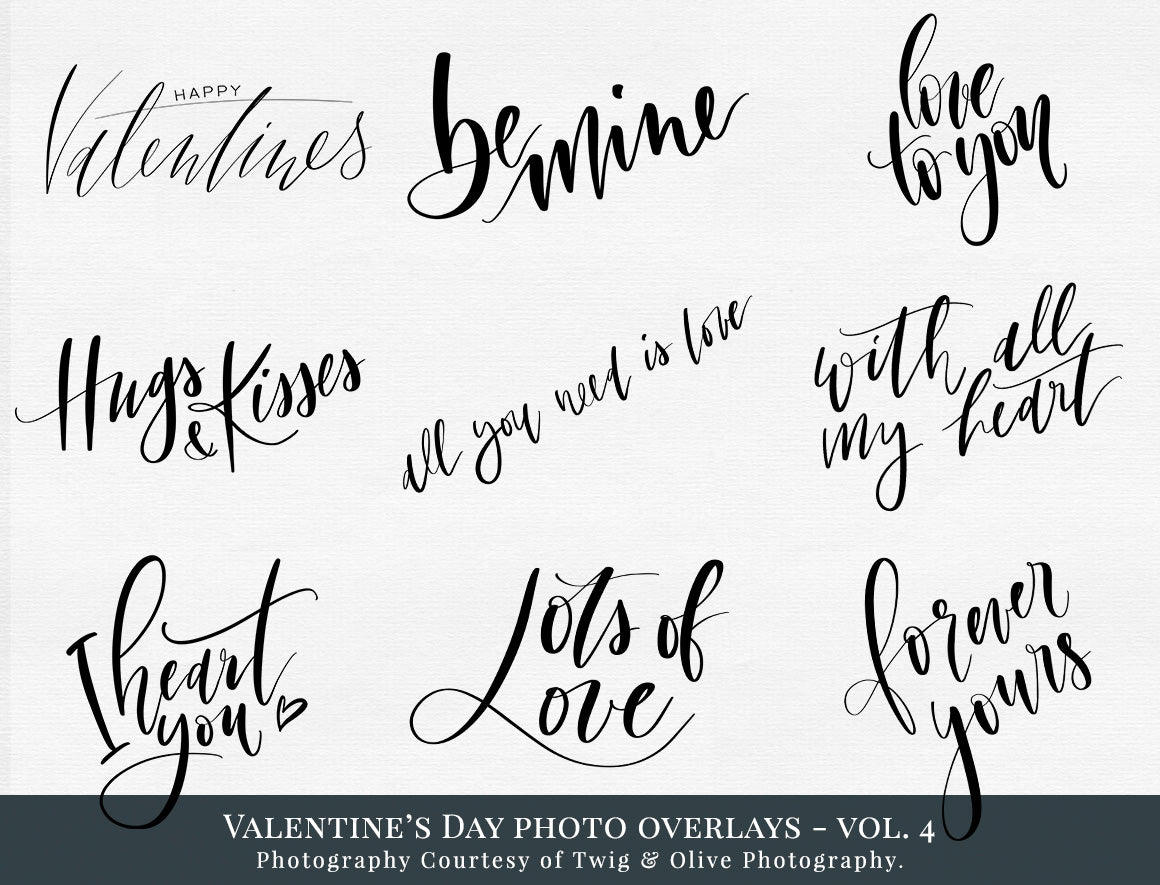 HAPPY
Valentines
be mine
love
to you
Hugs
& Kisses
all you need is love
with all
my heart
I heart
you
Lots of
Love
forever
yours
VALENTINE'S DAY PHOTO OVERLAYS - VOL. 4
Photography Courtesy of Twig & Olive Photography.